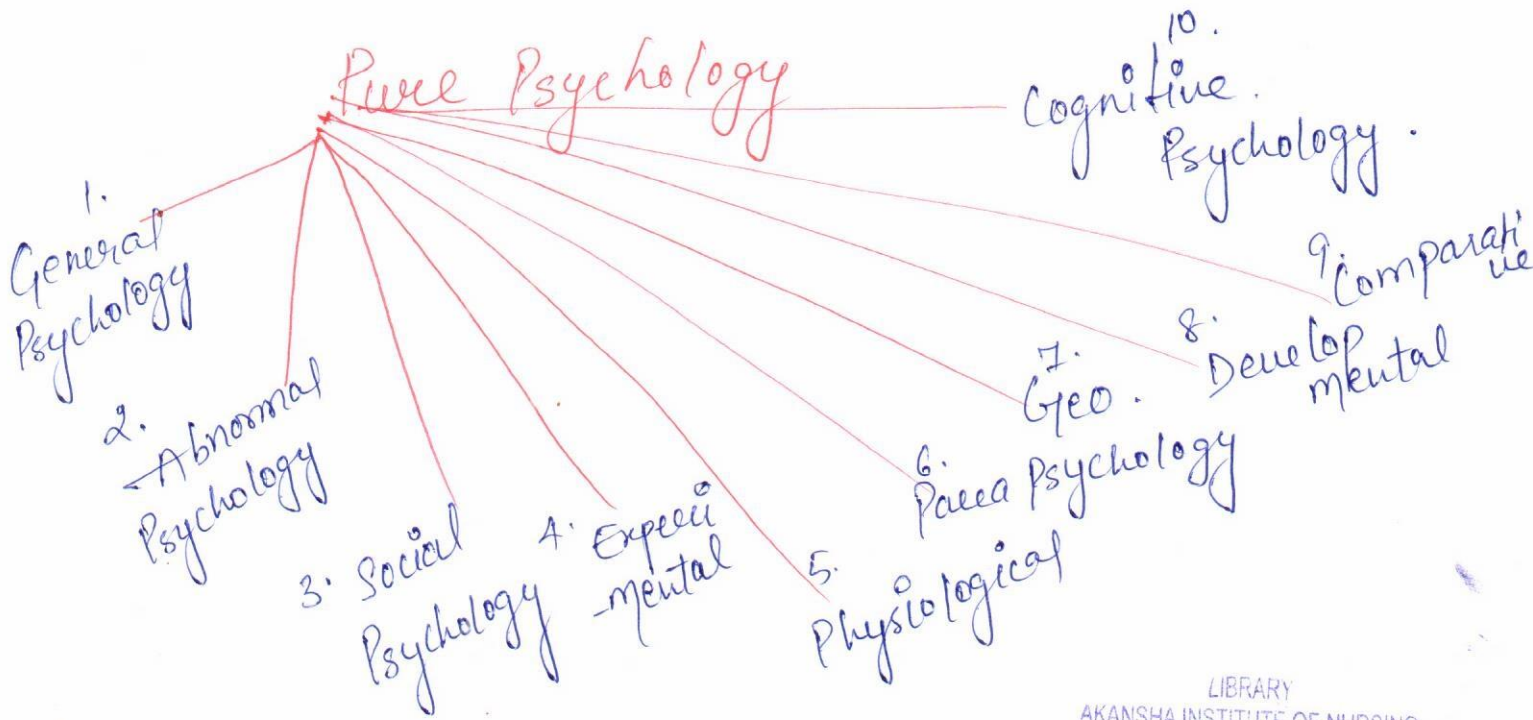 Pure Psychology
1.
General
Psychology
2.
Abnormal
Psychology
3. Social
Psychology
4. Experi
-mental
5.
Physiological
6.
Para Psychology
7.
Geo.
8.
Develop
mental
9.
Comparati
ve
10.
Cognitive.
Psychology.
LIBRARY
AKANSHA INSTITUTE OF NURSING